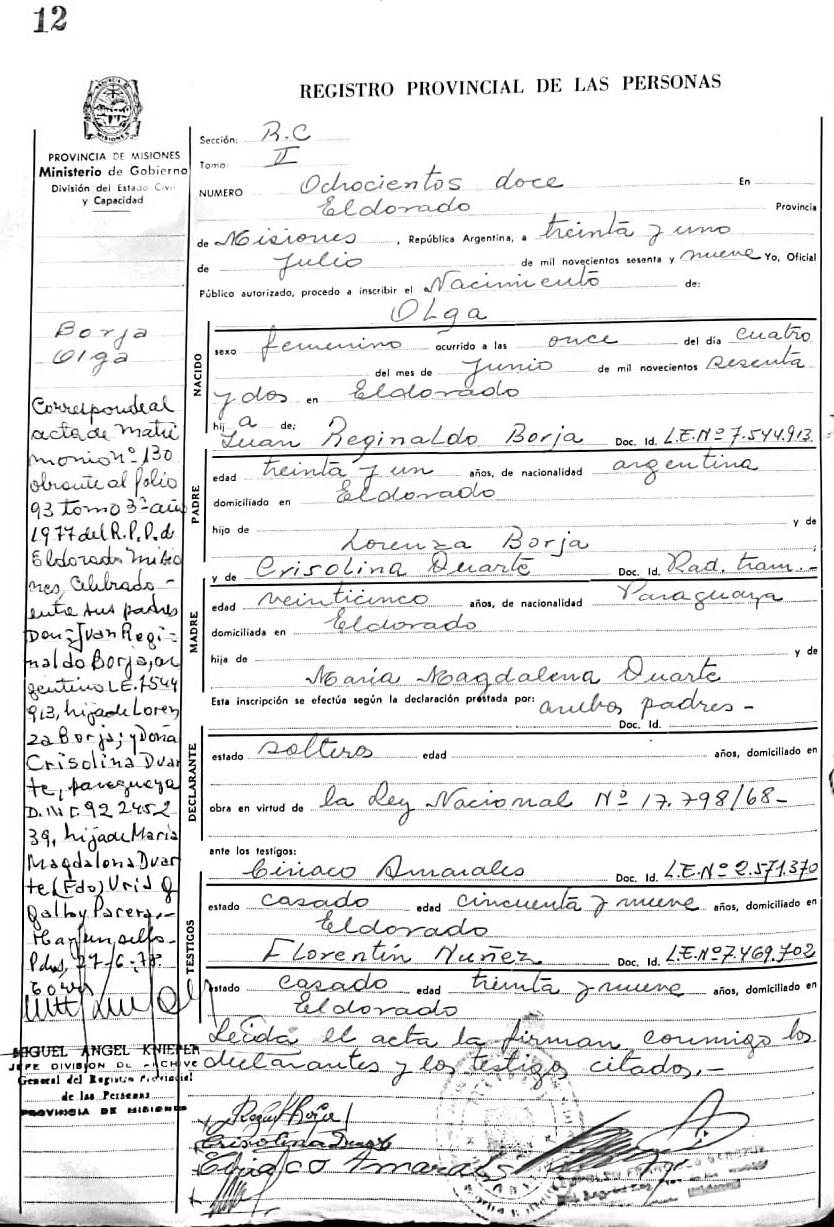 12
REGISTRO PROVINCIAL DE LAS PERSONAS
PROVINCIA DE MISIONES
Ministerio de Gobierno
División del Estado Civil
y Capacidad
Sección: R.C
Tomo: II
NUMERO Ochocientos doce En
Eldorado Provincia
de Misiones, República Argentina, a treinta y uno
de Julio de mil novecientos sesenta y nueve Yo, Oficial
Público autorizado, procedo a inscribir el Nacimiento de:
OLga
NACIDO
sexo femenino ocurrido a las once del día cuatro
del mes de Junio de mil novecientos sesenta
y dos en Eldorado
hij a de;
Juan Reginaldo Borja Doc. Id. L.E.Nº 7.544.913.
PADRE
edad treinta y un años, de nacionalidad argentina
domiciliado en Eldorado
hijo de y de
Lorenza Borja ;
y de Crisolina Duarte Doc. Id. Rad. tram.-
MADRE
edad veinticinco años, de nacionalidad Paraguaya
domiciliada en Eldorado
hija de y de
María Magdalena Duarte
Esta inscripción se efectúa según la declaración prestada por: ambos padres -
Doc. Id.
DECLARANTE
estado solteros edad años, domiciliado en
obra en virtud de la Ley Nacional Nº 17.798/68-
ante los testigos:
Ciriaco Amarales Doc. Id. L.E.Nº 2.571.370
TESTIGOS
estado casado edad cincuenta y nueve años, domiciliado en
Eldorado
Florentín Nuñez Doc. Id. L.E.Nº 7.469.702
estado casado edad treinta y nueve años, domiciliado en
Eldorado
Leída el acta la firman conmigo los
declarantes y los testigos citados,-
Borja
Olga
Corresponde al
acta de matri
monio nº 130
obrante al folio
93 tomo 3º año
1977 del R.P.P. de
Eldorado Misio
nes, Celebrado -
entre sus padres
Don: Juan Regi-
naldo Borja, ar
gentino L.E. 7544
913, hijo de Loren
za Borja; y Doña
Crisolina Duar
te, paraguaya
D.N.I. 92 2452
39, hija de Maria
Magdalena Duar
te (Fdo)
Pdas, 27-6-78
MIGUEL ANGEL KNIEPER
JEFE DIVISION DE ARCHIVO
General del Registro Provincial
de las Personas
PROVINCIA DE MISIONES
Crisolina Duarte